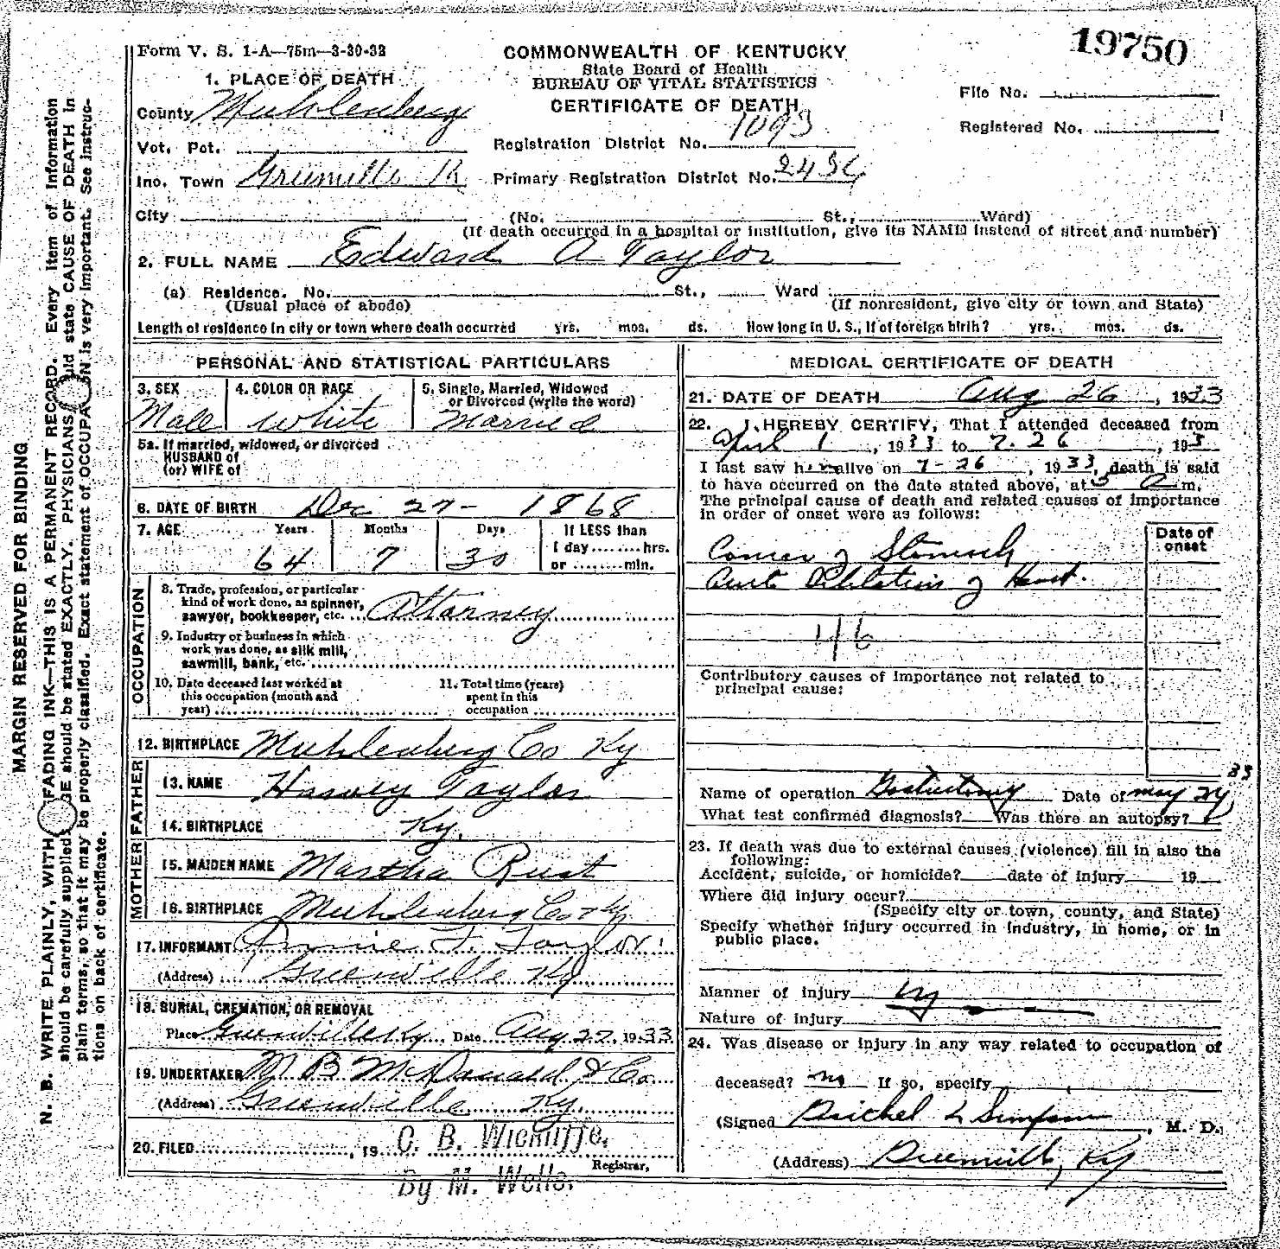 19750
Form V. S. 1-A—75m—3-30-32
COMMONWEALTH OF KENTUCKY
State Board of Health
BUREAU OF VITAL STATISTICS
CERTIFICATE OF DEATH
File No.
Registered No.
1. PLACE OF DEATH
County Muhlenberg
Vot. Pct.
Registration District No. 1093
Inc. Town Greenville
Primary Registration District No. 2436
City (No. St., Ward)
(If death occurred in a hospital or institution, give its NAME instead of street and number)
2. FULL NAME Edward A Taylor
(a) Residence. No. St., Ward
(Usual place of abode) (If nonresident, give city or town and State)
Length of residence in city or town where death occurred yrs. mos. ds. How long in U. S., if of foreign birth? yrs. mos. ds.
PERSONAL AND STATISTICAL PARTICULARS
3. SEX 4. COLOR OR RACE 5. Single, Married, Widowed
or Divorced (write the word)
Male White Married
5a. If married, widowed, or divorced
HUSBAND of
(or) WIFE of
6. DATE OF BIRTH Dec 27- 1868
7. AGE Years Months Days If LESS than
1 day........hrs.
or ........min.
64 7 30
OCCUPATION
8. Trade, profession, or particular
kind of work done, as spinner,
sawyer, bookkeeper, etc. Attorney
9. Industry or business in which
work was done, as silk mill,
sawmill, bank, etc.
10. Date deceased last worked at
this occupation (month and
year)
11. Total time (years)
spent in this
occupation
12. BIRTHPLACE Muhlenberg Co Ky
FATHER
13. NAME Harvey Taylor
14. BIRTHPLACE Ky.
MOTHER
15. MAIDEN NAME Martha Rust
16. BIRTHPLACE Muhlenberg Co Ky
17. INFORMANT Annie T. Taylor
(Address) Greenville Ky
18. BURIAL, CREMATION, OR REMOVAL
Place Greenville Ky Date Aug 27, 1933
19. UNDERTAKER M B McDonald & Co
(Address) Greenville Ky.
20. FILED , 19 C. B. Wickliffe,
Registrar.
By M. Wells.
MEDICAL CERTIFICATE OF DEATH
21. DATE OF DEATH Aug 26, 1933
22. I HEREBY CERTIFY, That I attended deceased from
April 1, 1933 to 7-26, 193
I last saw h alive on 7-26, 1933, death is said
to have occurred on the date stated above, at 5 a m.
The principal cause of death and related causes of importance
in order of onset were as follows:
Date of
onset
Cancer of Stomach
Acute Dilatation of Heart.
46
Contributory causes of importance not related to
principal cause:
Name of operation Date of May 24, 33
What test confirmed diagnosis? Was there an autopsy?
23. If death was due to external causes (violence) fill in also the
following:
Accident, suicide, or homicide? date of injury 19
Where did injury occur?
(Specify city or town, county, and State)
Specify whether injury occurred in industry, in home, or in
public place.
Manner of injury
Nature of injury
24. Was disease or injury in any way related to occupation of
deceased? no If so, specify
(Signed Simpson, M. D.
(Address) Greenville, Ky
MARGIN RESERVED FOR BINDING
N. B. WRITE PLAINLY, WITH FADING INK—THIS IS A PERMANENT RECORD. Every item of information
should be carefully supplied. GE should be stated EXACTLY. PHYSICIANS uld state CAUSE OF DEATH in
plain terms, so that it may be properly classified. Exact statement of OCCUPA N is very important. See instruc-
tions on back of certificate.